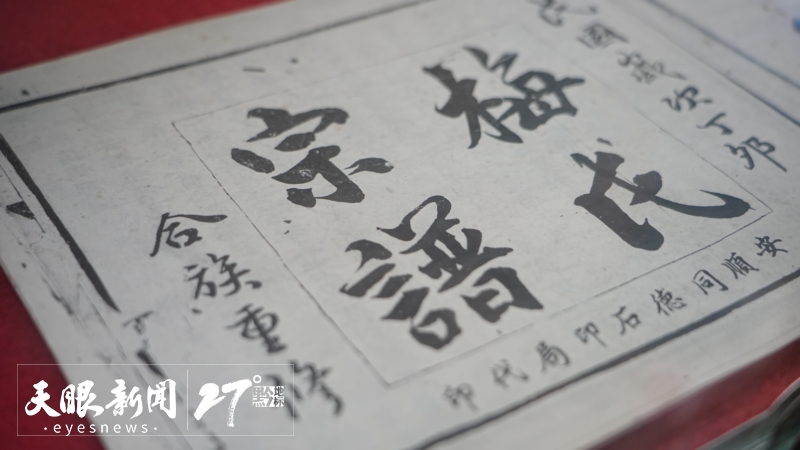 民國歲次丁卯
梅氏
宗譜
合族重修
安順同德石印局代印
天眼新闻 27°
·eyesnews·